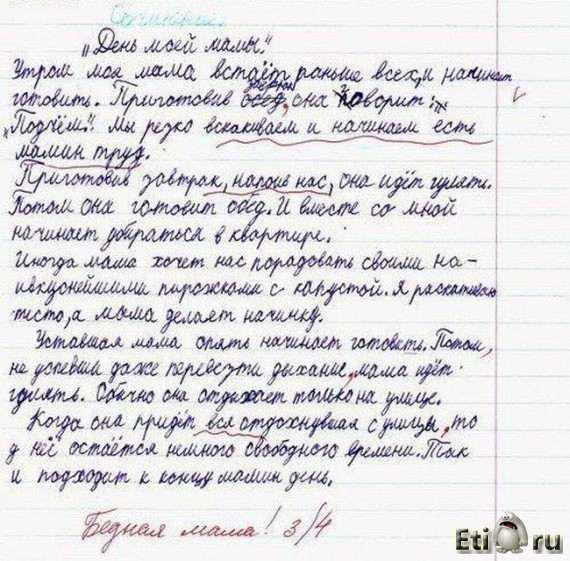 Сочинение.
„День моей мамы."
Утром моя мама встаёт раньше всех, и начинает
завтрак
готовить. Приготовив обед, она говорит:
„Подъём". Мы резко вскакиваем и начинаем есть
мамин труд.
Приготовив завтрак, напоив нас, она идёт гулять.
Потом она готовит обед. И вместе со мной
начинает убираться в квартире.
Иногда мама хочет нас порадовать своими на-
ивкуснейшими пирожками с капустой. Я раскатываю
тесто, а мама делает начинку.
Уставшая мама опять начинает готовить. Потом,
не успевши даже перевезти дыхание, мама идёт
гулять. Обычно она отдыхает только на улице.
Когда она придёт вся отдохнувшая с улицы, то
у неё остаётся немного свободного времени. Так
и подходит к концу мамин день.
Бедная мама! 3/4
Eti ru